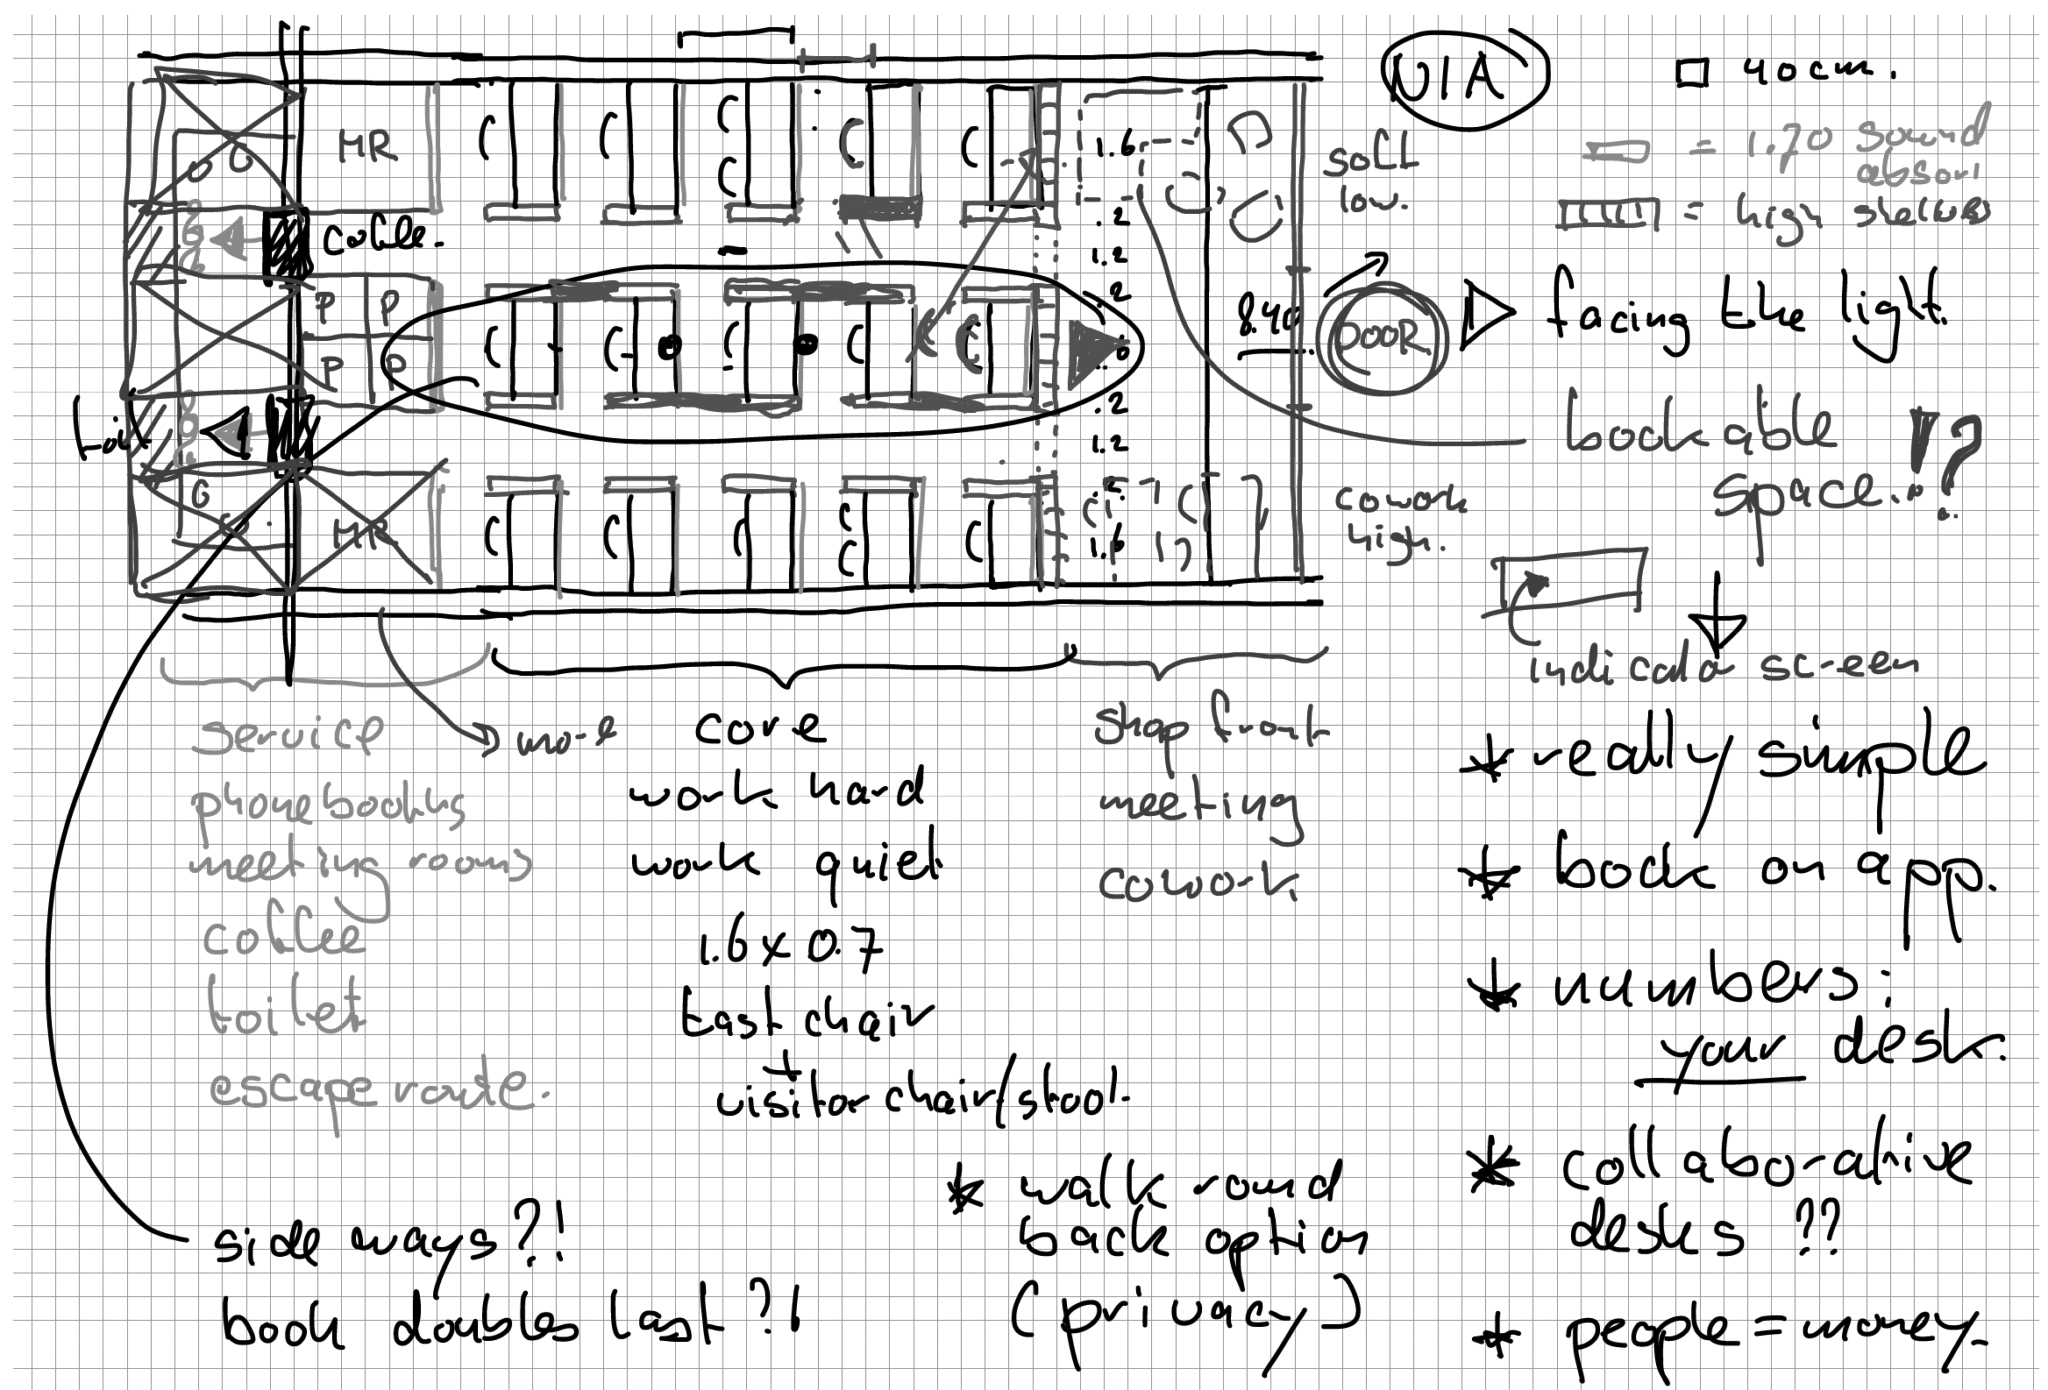 N/A
40cm.
= 1.70 sound
absorb
= high shelves
MR
coffee.
P P
P P
toil
MR
1.6
.2
1.2
.2
.2
1.2
.2
1.6
8.40
soft
low.
DOOR.
facing the light.
bookable
space..!?
cowork
high.
indicator screen
service
phonebooths
meeting rooms
coffee
toilet
escape route.
more
core
work hard
work quiet
1.6 x 0.7
task chair
+
visitor chair/stool.
shop front
meeting
cowork
* really simple
* book on app.
* numbers:
your desk.
* collaborative
desks ??
* people = money.
* walk round
back option
(privacy)
side ways?!
book doubles last?!